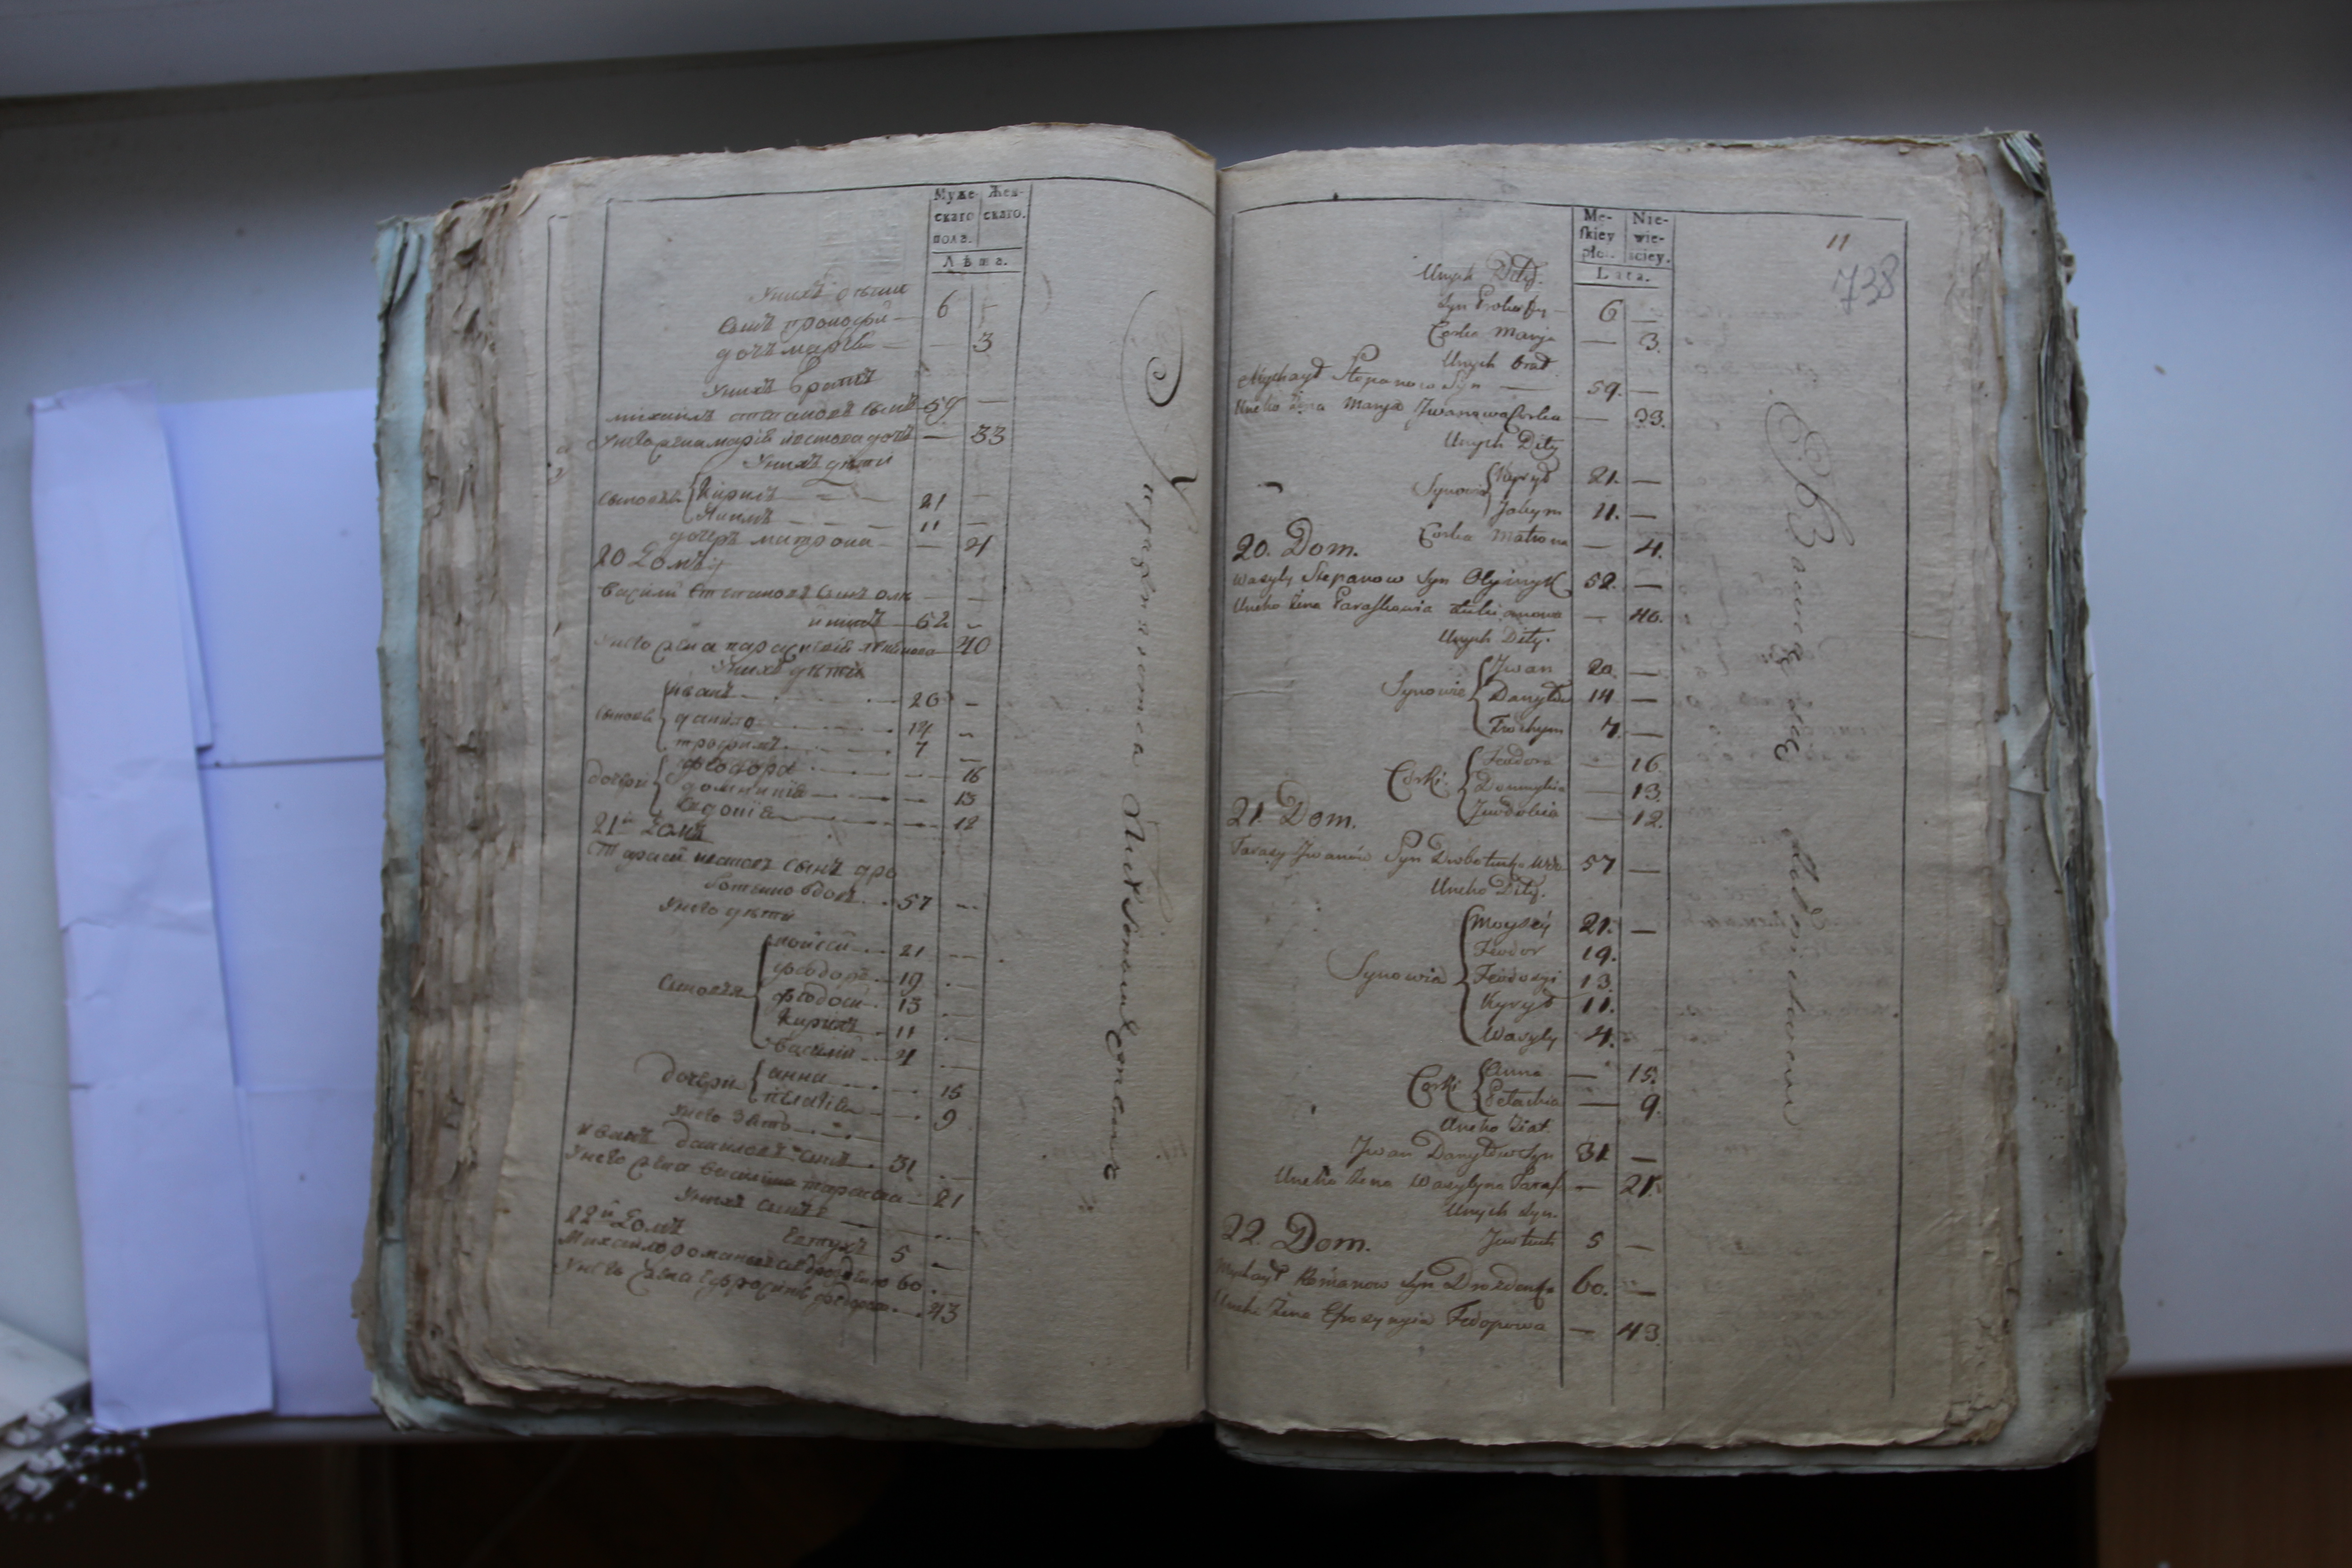 Муже-
скаго
пола.
Жен-
скаго.
Лѣта.
Унихъ дѣти
Сынъ прокофій — 6 —
дочъ марія — — 3
Унихъ братъ
михаилъ степановъ сынъ 59 —
Унего жена марія дочъ — 33
Унихъ дѣти
сыновья Кирилъ 21 —
Якимъ 11 —
дочерь матрона — 4
20 Домъ
василій степановъ сынъ олій
никъ 52 —
Унего жена параскевія 40
Унихъ дѣти
сыновья иванъ 20 —
данило 14 —
трофимъ 7 —
дочери феодора — 16
домникія — 13
Евдокія — 12
21й Домъ
Тарасій ивановъ сынъ дро
ботенко вдовъ 57 —
Унего дѣти
Сыновья мойсей 21 —
феодоръ 19
феодосій 13
Кирилъ 11
василій 4
дочери анна 15
пелагія 9
Унего зять
Иванъ даниловъ сынъ 31
Унего жена василина тарасова 21
Унихъ сынъ
Евтухъ 5 —
22й Домъ
Михайло романовъ 60
Унего жена ефросинія федорова 43
Me-
skiey
płci.
Nie-
wie-
sciey.
Lata.
11
738
Unych Dity.
Syn Prokofy — 6 —
Corka Marya — 3.
Unych brat
Mychaył Stepanow Syn — 59. —
Uneho Żena Marya Jwanowa Corka — 33.
Unych Dity
Synowie Kyrył 21. —
Jakym 11. —
Corka Matrona — 4.
20. Dom.
Wasyly Stepanow Syn Olijnyk 52. —
Uneho Żena Paraskewia — 40.
Unych Dity.
Synowie Jwan 20. —
Danyło 14 —
Trochym 7. —
Corki Feodora — 16.
Domnykia — 13.
Jewdokia — 12.
21. Dom.
Tarasy Jwanów Syn 57 —
Uneho Dity.
Synowie Moysey 21. —
Feodor 19.
Feodosyi 13.
Kyrył 11.
Wasyly 4.
Corki Anna — 15.
Pelachia — 9.
Uneho Ziat.
Jwan Danyłow Syn 31 —
Uneho Żena Wasylyna Taras — 21.
Unych Syn.
Jewtuch 5 —
22. Dom.
Mychaył Romanow Syn 60. —
Uneho Żena Efrozynyia Fedorowa — 43.